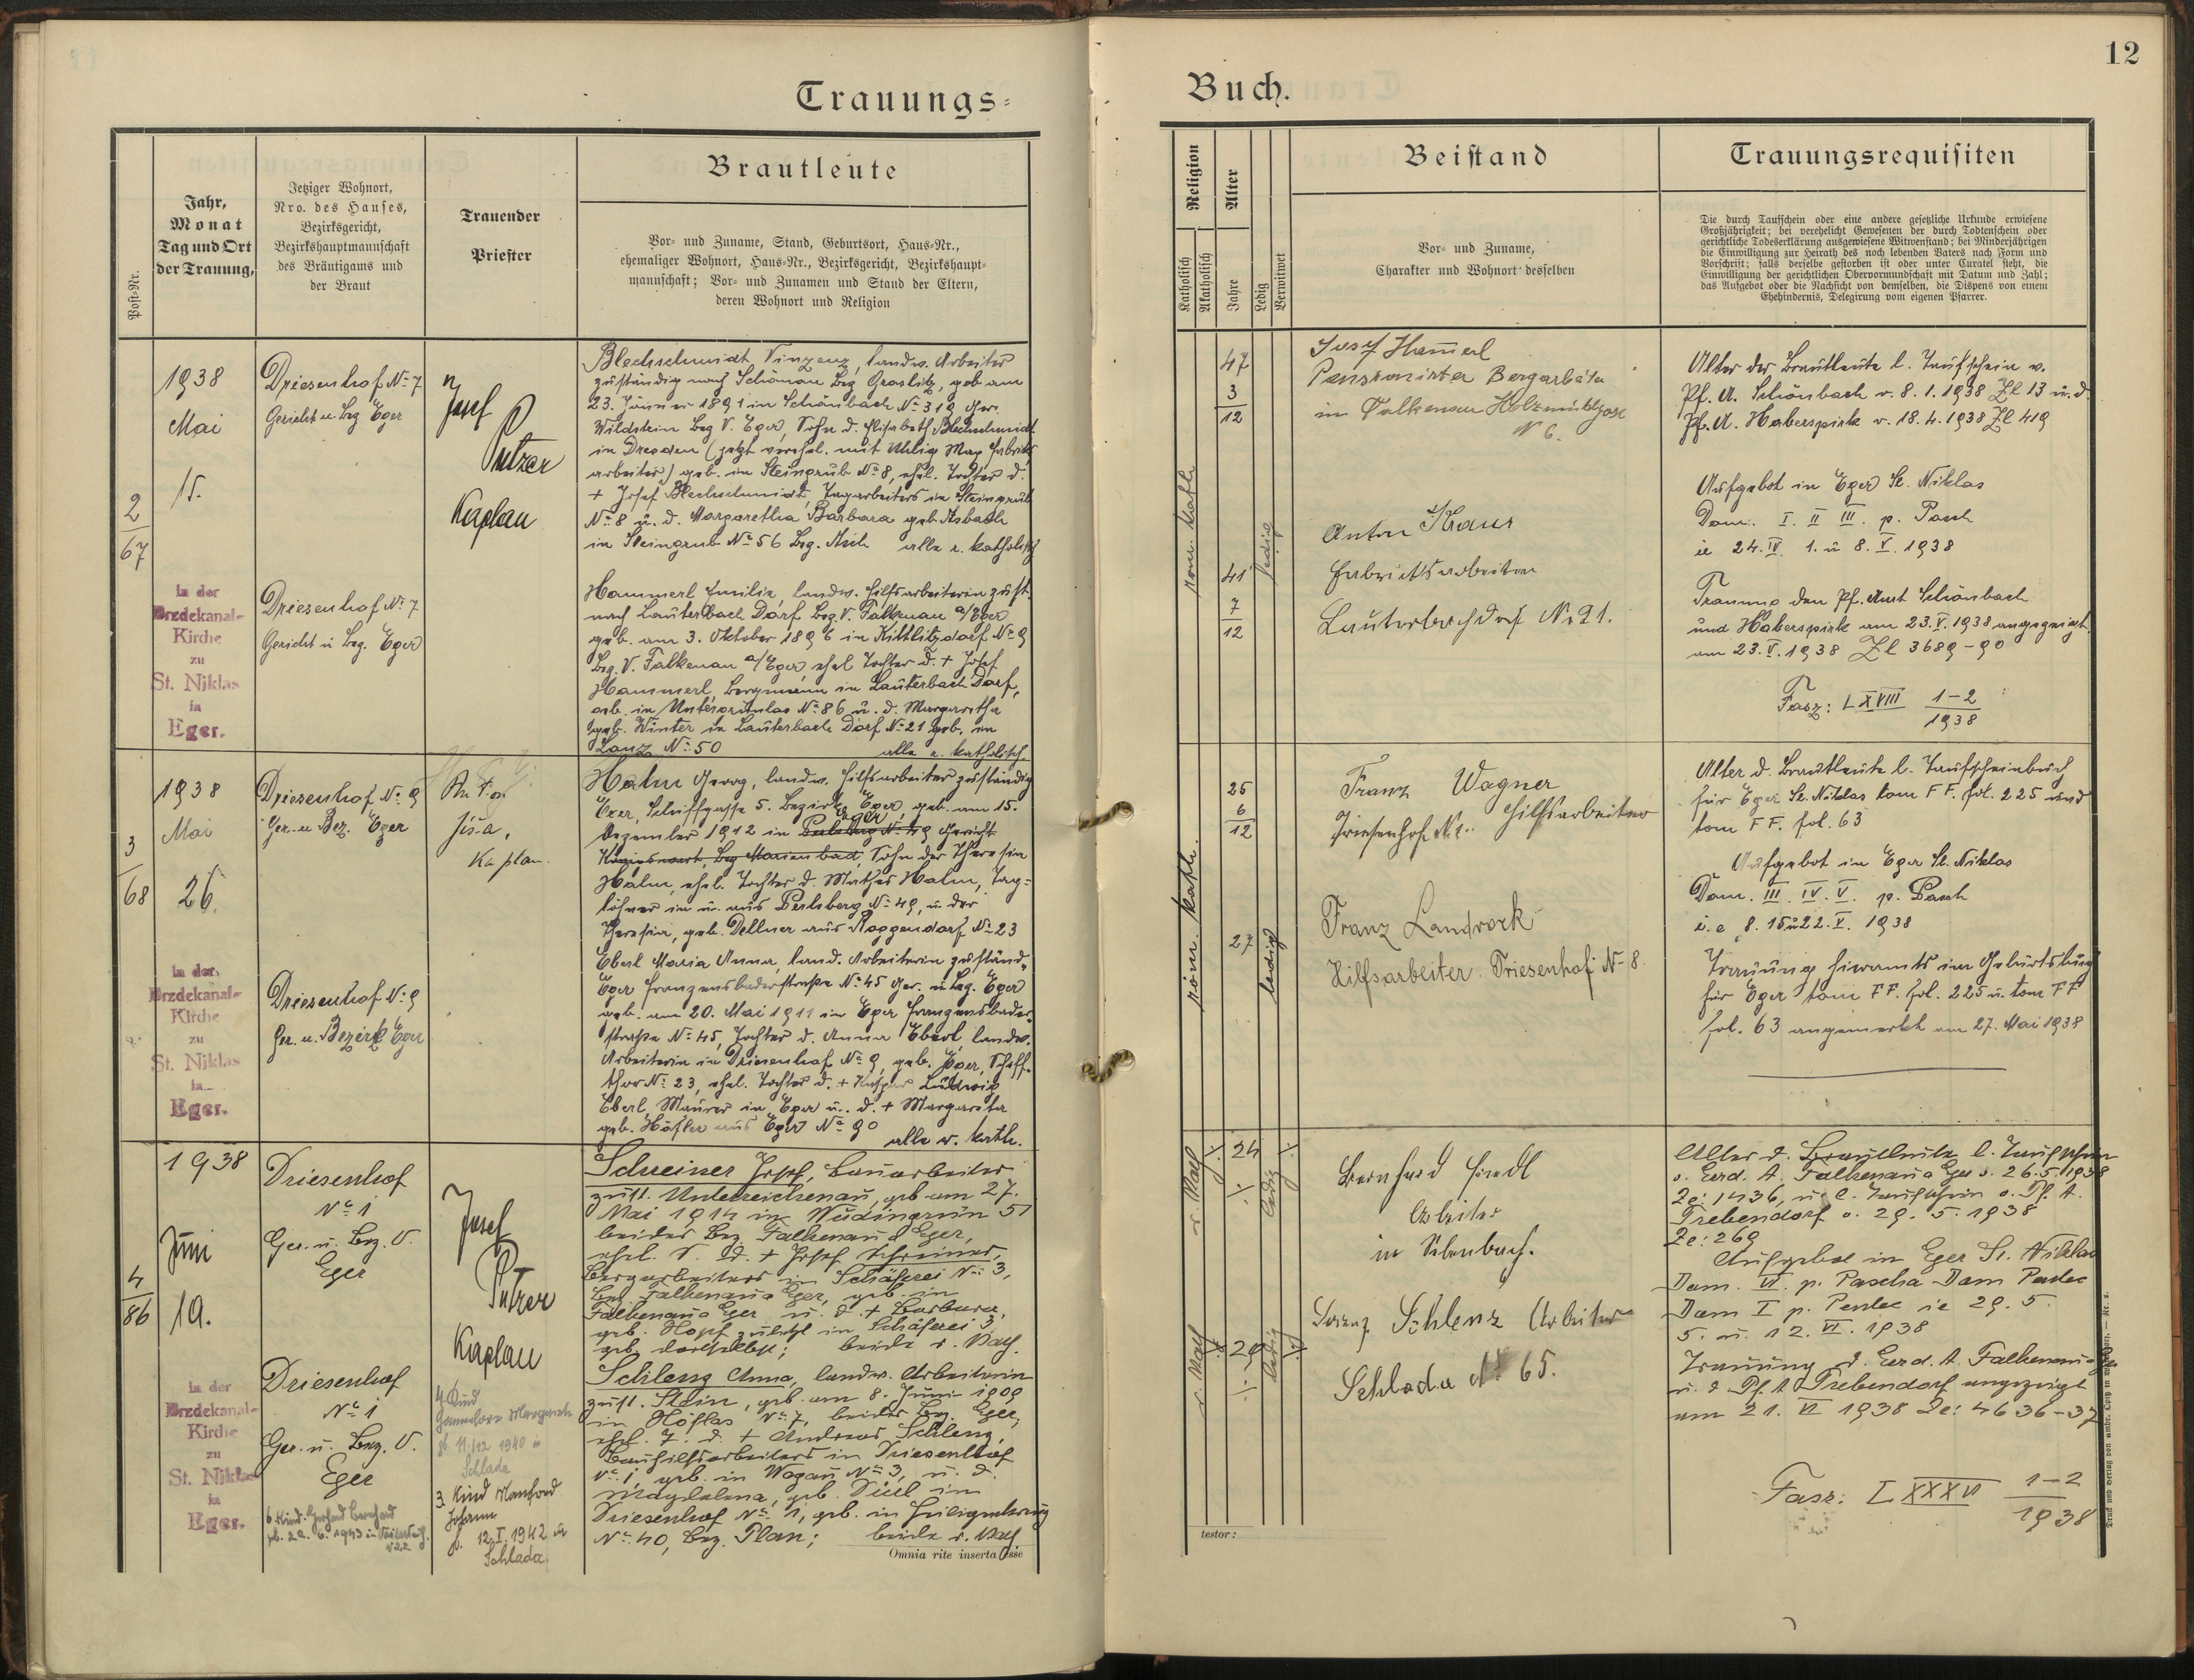 12
Trauungs-
Buch.
Post-Nr.
Jahr,
Monat
Tag und Ort
der Trauung,
Jetziger Wohnort,
Nro. des Hauses,
Bezirksgericht,
Bezirkshauptmannschaft
des Bräutigams und
der Braut
Trauender
Priester
Brautleute
Vor- und Zuname, Stand, Geburtsort, Haus-Nr.,
ehemaliger Wohnort, Haus-Nr., Bezirksgericht, Bezirkshaupt-
mannschaft; Vor- und Zunamen und Stand der Eltern,
deren Wohnort und Religion
Religion
Katholisch
Akatholisch
Alter
Jahre
Ledig
Verwitwet
Beistand
Vor- und Zuname,
Charakter und Wohnort desselben
Trauungsrequisiten
Die durch Taufschein oder eine andere gesetzliche Urkunde erwiesene
Großjährigkeit; bei verehelicht Gewesenen der durch Todtenschein oder
gerichtliche Todeserklärung ausgewiesene Witwenstand; bei Minderjährigen
die Einwilligung zur Heirath des noch lebenden Vaters nach Form und
Vorschrift; falls derselbe gestorben ist oder unter Curatel steht, die
Einwilligung der gerichtlichen Obervormundschaft mit Datum und Zahl;
das Aufgebot oder die Nachsicht von demselben, die Dispens von einem
Ehehindernis, Delegirung vom eigenen Pfarrer.
2
67
1938
Mai
15.
in der
Erzdekanal-
Kirche
zu
St. Niklas
in
Eger.
Driesenhof No 7
Gericht u. Bez Eger
Driesenhof No 7
Gericht u Bez. Eger
Josef
Putzer
Kaplan
Blechschmidt Vinzenz, landw. Arbeiter
zuständig nach Schönau Bez Graslitz, geb am
23. Jänner 1891 in Schönbach No 319 Ger.
Wildstein Bez V. Eger, Sohn d. Elisabeth Blechschmidt
in Dresden (jetzt verehel. mit Uhlig Max Fabriks
arbeiter) geb. in Steingrub No 8, ehel. Tochter d.
+ Josef Blechschmidt, Tagarbeiters in Steingrub
No 8 u. d. Margaretha Barbara geb. Asbach
in Steingrub No 56 Bez. Asch alle r. katholisch
Hammerl Emilie, landw. Hilfsarbeiterin zust.
nach Lauterbach Dorf Bez. V. Falkenau a/Eger
geb. am 3. Oktober 1896 in Kittlitzdorf No 9
Bez. V. Falkenau a/Eger, ehel Tochter d. + Josef
Hammerl, Bergmann in Lauterbach Dorf,
geb. in No 86 u. d. Margaretha
geb. Winter in Lauterbach Dorf No 21 geb. in
Lanz No 50 alle r. katholisch.
röm. kath.
47
3
12
41
7
12
ledig
Josef Hammerl
Pensionirter Bergarbeiter
in Falkenau Holzmühlgasse
N 6.
Anton Kraus
Fabriksarbeiter
Lauterbachdorf No 21.
Alter der Brautleute l. Taufschein v.
Pf. A. Schönbach v. 8. 1. 1938 Zl 13 u. d.
Pf. A. Haberspirk v. 18. 4. 1938 Zl 419
Aufgebot in Eger St. Niklas
Dom. I. II III. p. Pasch
ie 24. IV. 1. u 8. V. 1938
Trauung den Pf. Amt Schönbach
und Haberspirk am 23. V. 1938 angezeigt.
am 23. V. 1938 Zl 3689-90
Fasz: LXVIII 1-2
1938
3
68
1938
Mai
26.
in der
Erzdekanal-
Kirche
zu
St. Niklas
in
Eger.
Driesenhof No 9
Ger. u. Bez. Eger
Driesenhof No 9
Ger. u. Bezirk Eger
Jiša,
Kaplan.
Halm Georg, landw. Hilfsarbeiter zuständig
Eger, Schiffgasse 5. Bezirk Eger geb. am 15.
Eger
Dezember 1912 in Perlsberg No 49 Gericht
Königswart, Bez Marienbad, Sohn der Theresia
Halm, ehel. Tochter d. Mathes Halm, Tag-
löhner in u. aus Perlsberg No 49, u. der
Theresia, geb. Dellner aus Roggendorf No 23
Eberl Maria Anna, land. Arbeiterin zuständ.
Eger Franzensbaderstraße No 45 Ger. u. Bez. Eger
geb. am 20. Mai 1911 in Eger Franzensbader-
straße No 45, Tochter d. Anna Eberl, landw.
Arbeiterin in Driesenhof No 9, geb. Eger, Schiff-
thor No 23, ehel. Tochter d. + Kaspar Ludwig
Eberl, Maurer in Eger u. d. + Margareta
geb. Höfler aus Eger No 90
alle r. kath.
röm. kath.
25
6
12
27
ledig
Franz Wagner
Driesenhof No 1. Hilfsarbeiter
Franz Landrock
Hilfsarbeiter. Triesenhof N- 8.
Alter d. Brautleute l. Taufscheinbuch
für Eger St. Niklas tom FF. fol. 225 und
tom FF. fol. 63
Aufgebot in Eger St. Niklas
Dom. III. IV. V. p. Pasch
i. e 8. 15 u 22. V. 1938
Trauung hieramts im Geburtsbuch
für Eger tom FF. fol. 225 u. tom FF
fol. 63 angemerkt am 27. Mai 1938
4
86
1938
Juni
19.
in der
Erzdekanal-
Kirche
zu
St. Niklas
in
Eger.
Driesenhof
No 1
Ger. u. Bez. V.
Eger
Driesenhof
No 1
Ger. u. Bez. V.
Eger
6 Kind. Gerhard Bernhard
Josef
Putzer
Kaplan
4. Kind
Hannelore Margarete
gb. 11/12 1940 in
Schlada
3. Kind Manfred
Johann
g. 12. I. 1942 in
Schlada
Schreiner Josef, Bauarbeiter
zust. Unterreichenau, geb am 27.
Mai 1914 in Wudingrün 51
beides Bez. Falkenau a Eger,
ehel. S. d. + Josef Schreiner,
Bergarbeiters in Schäferei No 3,
Bez. Falkenau a Eger, geb. in
Falkenau a Eger u. d. + Barbara,
geb. Hopf zuletzt in Schäferei 3
geb. daselbst; beide r. kath.
Schlenz Anna, landw. Arbeiterin
zust. Stein, geb. am 8. Juni 1909
in Höflas No 7, beides Bez. Eger,
ehel. T. d. + Andreas Schlenz,
Bauhilfsarbeiters in Driesenhof
No 1 geb. in Wogau No 3, u. d.
Magdalena, geb. in
Driesenhof No 1, geb. in Heiligenkreuz
No 40, Bez. Plan; beide r. kath
Omnia rite inserta esse
r. kath
24
ledig
r. kath
29
ledig
Bernhard
Arbeiter
in
Lorenz Schlenz Arbeiter
Schlada No 65.
Alter d. Brautleute l. Taufschein
v. Erzd. A. Falkenau a Eger v. 26. 5. 1938
Ze: 1436, u. l. Taufschein v. Pf. A.
Trebendorf v. 29. 5. 1938
Ze: 269
Aufgebot in Eger St. Niklas
Dom. VI. p. Pascha Dom Pentec
Dom I p. Pentec ie 29. 5.
5. u. 12. VI. 1938
Trauung d. Erzd. A. Falkenau a Eger
u. d Pf. A Trebendorf angezeigt
am 21. VI 1938 Ze: 4636-37
Fasz: LXXXVI 1-2
1938
testor: